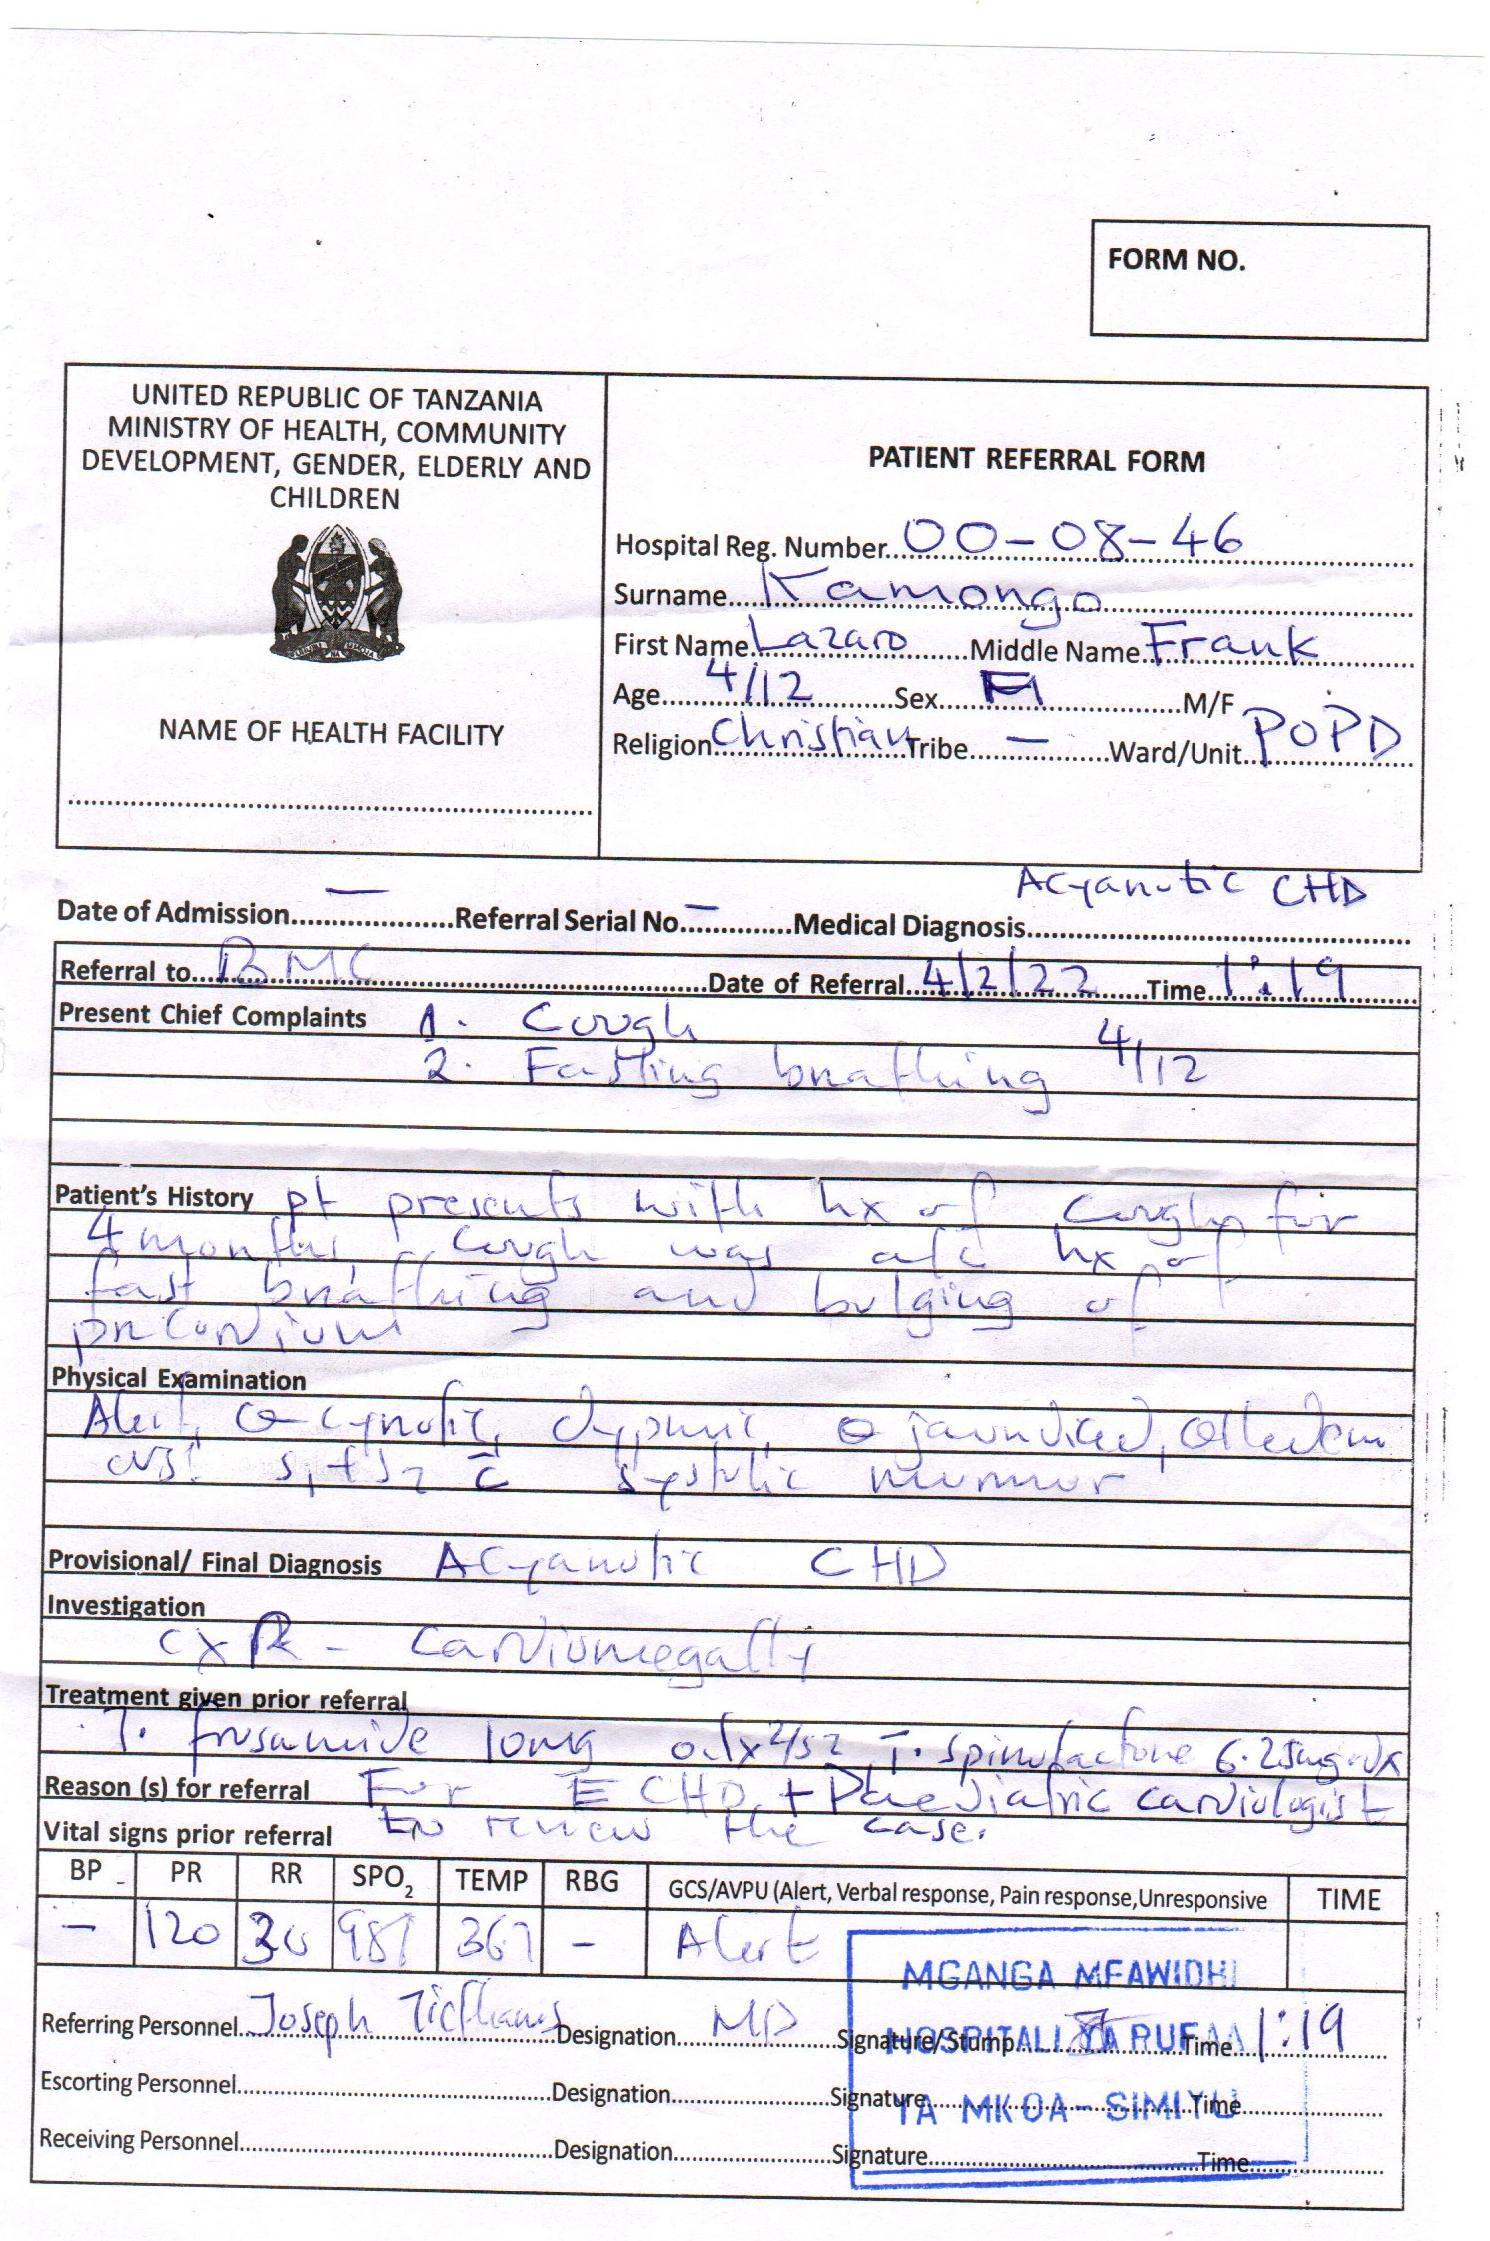 FORM NO.
UNITED REPUBLIC OF TANZANIA
MINISTRY OF HEALTH, COMMUNITY
DEVELOPMENT, GENDER, ELDERLY AND
CHILDREN
NAME OF HEALTH FACILITY
PATIENT REFERRAL FORM
Hospital Reg. Number 00-08-46
Surname Kamongo
First Name Lazaro Middle Name Frank
Age 4/12 Sex M/F
Religion Christian Tribe — Ward/Unit POPD
Date of Admission — Referral Serial No — Medical Diagnosis Acyanotic CHD
Referral to BMC Date of Referral 4/2/22 Time 1:19
Present Chief Complaints 1. Cough
2. Fasting breathing 4/12
Patient's History pt presents with hx of cough for
4 months, cough was hx of
fast breathing and bulging of
precordium
Physical Examination
Alert, cynotic, dyspnic, jaundiced,
CVS: S1+S2 c̄ systolic murmur
Provisional/ Final Diagnosis Acyanotic CHD
Investigation
CXR - Cardiomegally
Treatment given prior referral
T. frusamide 10mg T. spinolactone 6.25mg
Reason (s) for referral For CHD + Paediatric cardiologist
to review the case.
Vital signs prior referral
BP PR RR SPO2 TEMP RBG GCS/AVPU (Alert, Verbal response, Pain response,Unresponsive TIME
— 120 30 - Alert
Referring Personnel Joseph Designation MD Signature/Stump Time 1:19
Escorting Personnel Designation Signature Time
Receiving Personnel Designation Signature Time
MGANGA MFAWIDHI
HOSPITALI YA RUFAA
YA MKOA - SIMIYU